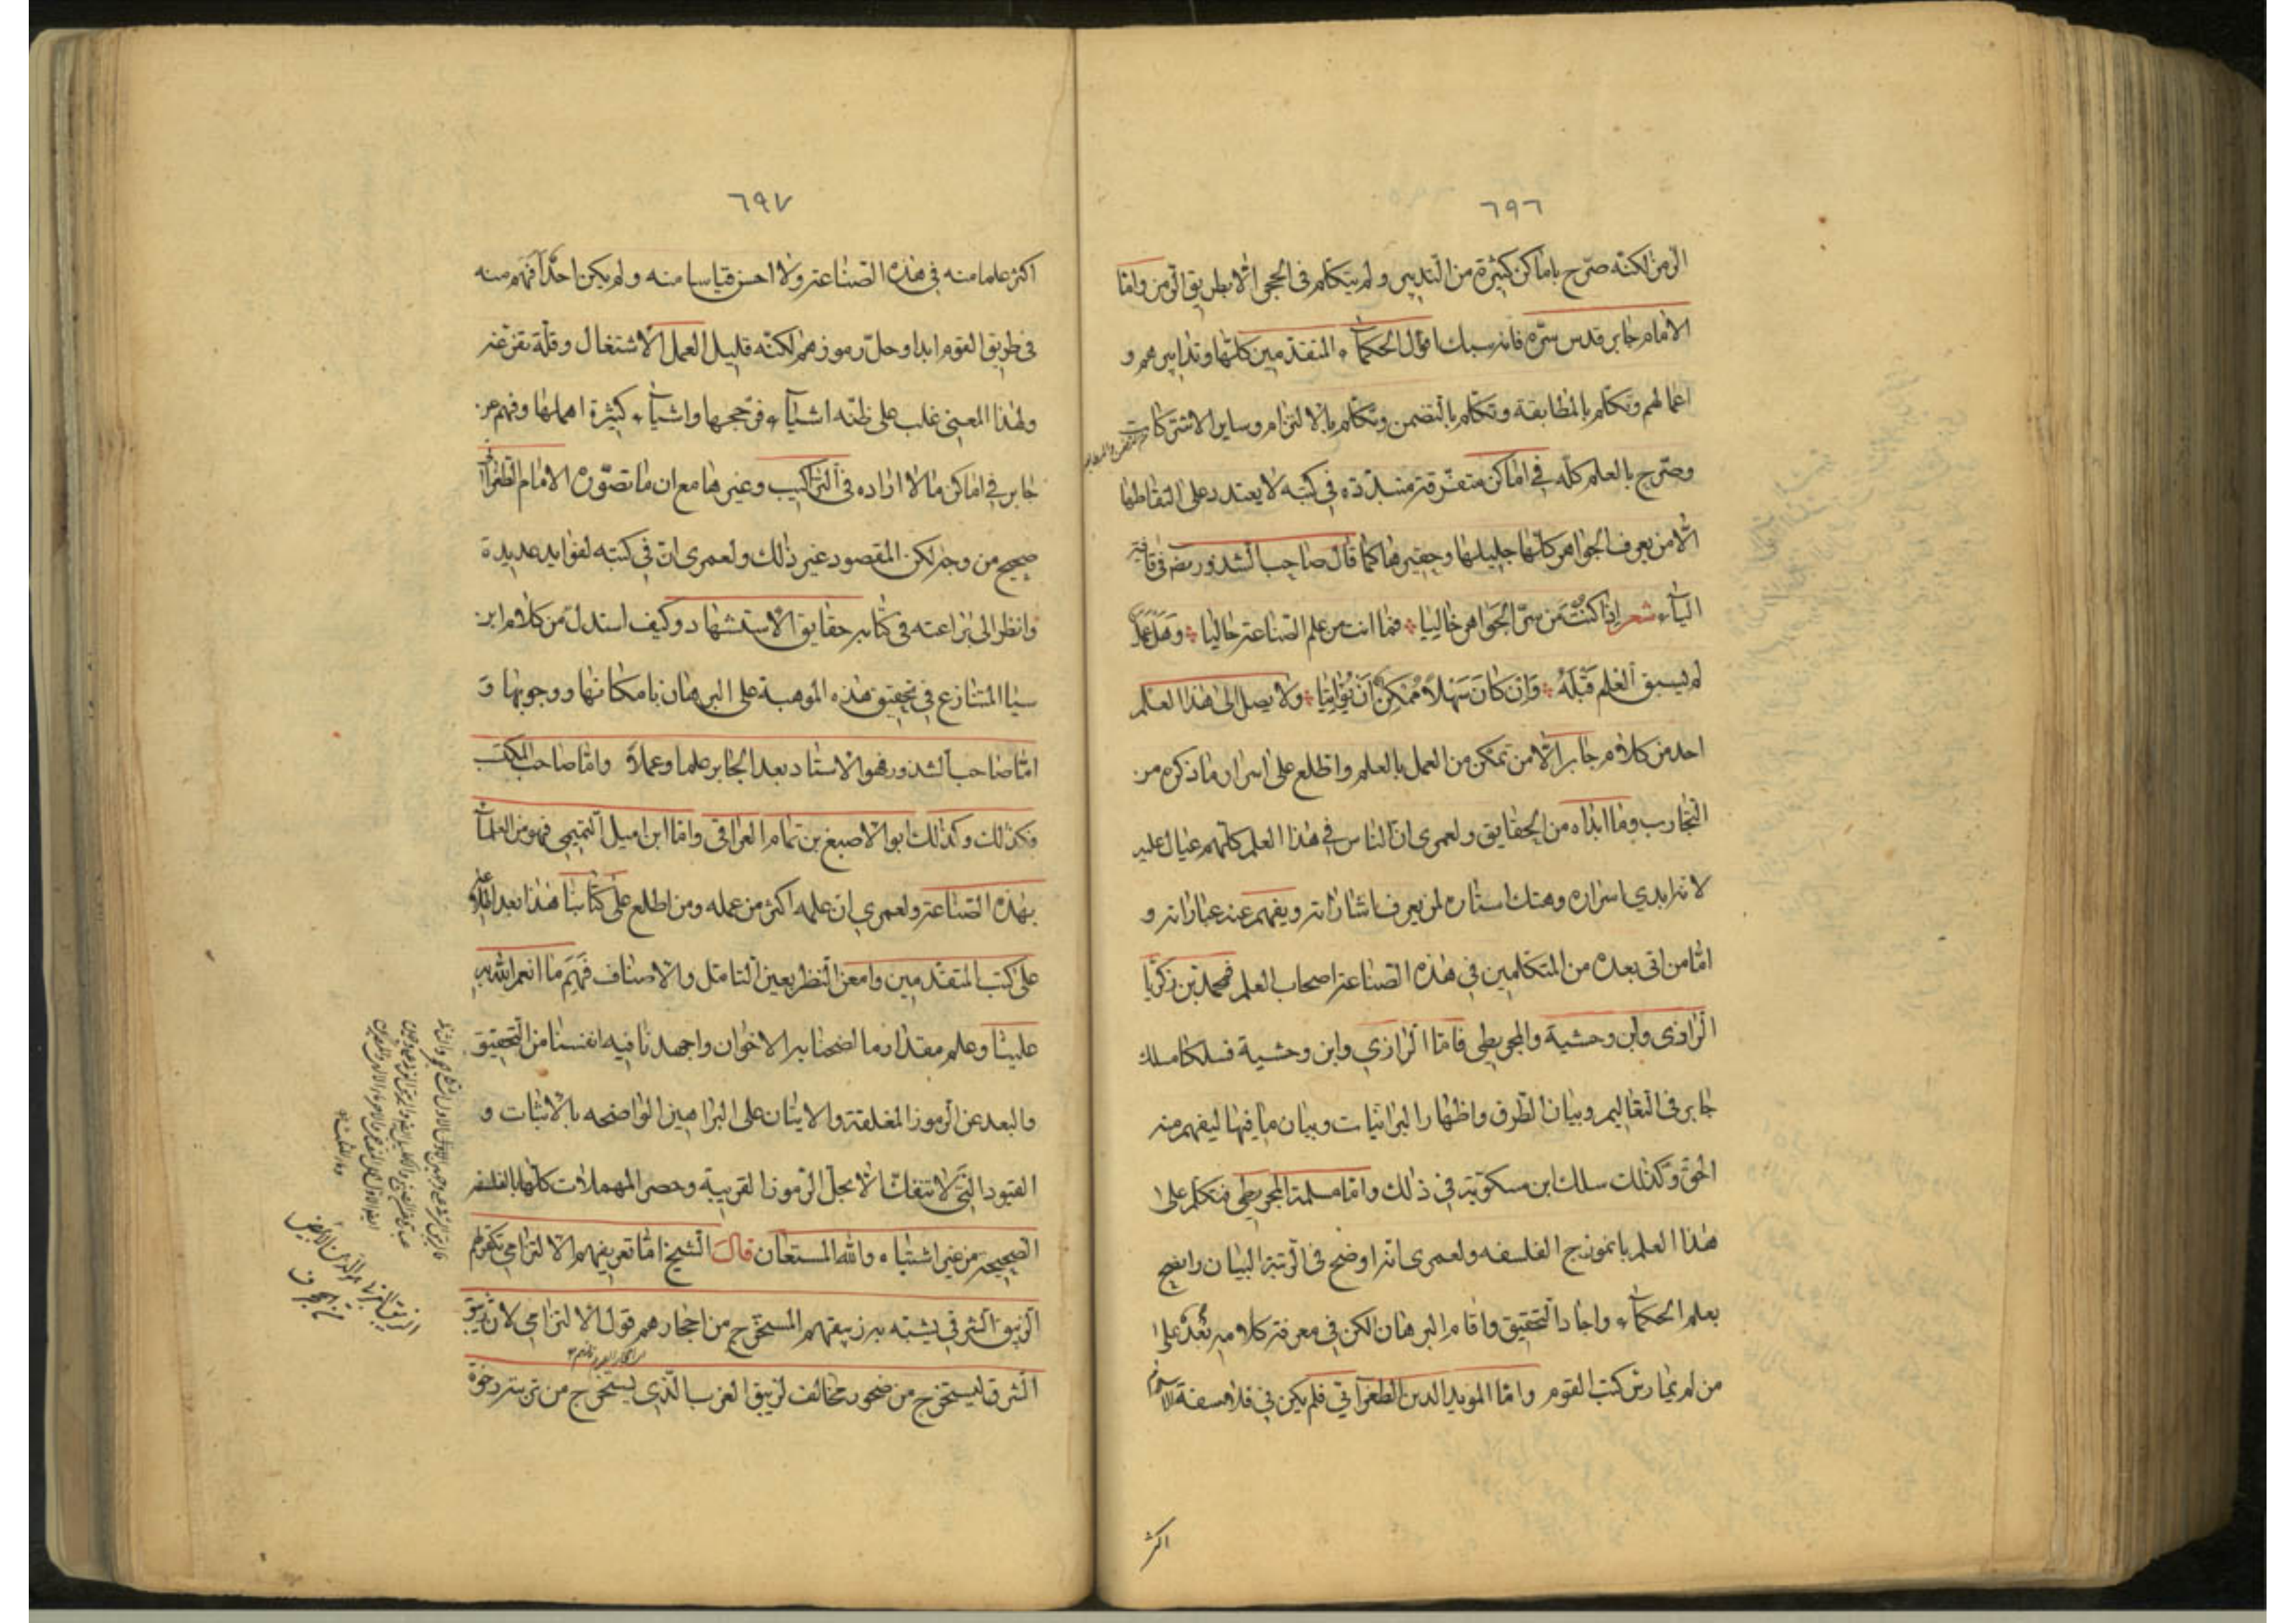 ٦٩٦
الرمز لكنّه صرّح باماكن كثيرة من التدبير ولم يتكلّم فى الحجر الّا بطريق الرمز وامّا
الامام جابر قدس سرّه فانه سبك اقوال الحكمآء المتقدّمين كلّها وتدابيرهم و
اعمالهم وتكلّم بالمطابقة وتكلّم بالتضمن وتكلّم بالالتزام وساير الاشتراكات
وصرّح بالعلم كلّه فى اماكن متفرّقة متبدّدة فى كتبه لا يعتدد على التقاطها
الّا من يعرف الجواهر كلّها جليلها وحقيرها كما قال صاحب الشذور رضه فى قافية
اليآء شعر اذا كنت من سرّ الجواهر خاليا فما انت من علم الصناعة حاليا وهل عمل
لم يسبق العلم قبله وان كان سهلا ممكن ان يؤاتيا ولا يصل الى هذا العلم
احد من كلام جابر الّا من تمكن من العمل بالعلم واطلع على اسرار ما ذكره من
التجارب وما ابداه من الحقايق ولعمرى انّ الناس فى هذا العلم كلّهم عيال عليه
لانه ابدي اسراره وهتك استاره لمن يعرف اشاراته ويفهم عنه عباراته و
امّا من اتى بعده من المتكلّمين فى هذه الصناعة اصحاب العلم فمحمد بن زكريّا
الرازى وابن وحشية والمجريطى فامّا الرازي وابن وحشية فسلكا مسلك
جابر فى التعاليم وبيان الطرق واظهار البرانيات وبيان ما فيها ليفهم منه
الحق وكذلك سلك ابن مسكويه فى ذلك وامّا مسلمة المجريطى فتكلّم على
هذا العلم بانموذج الفلسفه ولعمرى انه اوضح فى الرتبة البيان وافصح
بعلم الحكمآء واجاد التحقيق واقام البرهان لكن فى معرفة كلامه بُعدٌ على
من لم يمارس كتب القوم وامّا المويد الدين الطغرآئى فلم يكن فى فلاسفة الاسلام
اكثر
٦٩٧
اكثر علما منه فى هذه الصناعة ولا احسن قياسا منه ولم يكن احدا افهم منه
فى طريق القوم ابدا وحلّ رموزهم لكنّه قليل العمل الاشتغال وقلّة تفرّغه
ولهذا المعنى غلب على ظنّه اشيآء فرّجحها واشيآء كثيرة اهملها وفهم عن
جابر فى اماكن ما لا اراده فى التراكيب وغيرها مع ان ما تصوّره الامام الطغرآئى
صحيح من وجه لكن المقصود غير ذلك ولعمرى انّ فى كتبه لفوايد عديدة
وانظر الى براعته فى كتابه حقايق الاستشهاد وكيف استدلّ من كلام ابن
سينا المتنازع فى تحقيق هذه الموهبة على البرهان بامكانها ووجوبها و
امّا صاحب الشذور فهو الاستاد بعد الجابر علما وعملا وامّا صاحب المكتسب
فكذلك وكذلك ابو الاصبغ بن تمام العراقى وامّا ابن اميل التميمى فهو من العلمآء
بهذه الصناعة ولعمرى ان علمه اكثر من عمله ومن اطلع على كتابنا هذا بعد اطلاعه
على كتب المتقدّمين وامعن النظر بعين التامّل والانصاف فهم ما انعم الله به
علينا وعلم مقدار ما اوضحنا به الاخوان واجهدنا فيه انفسنا من التحقيق
والبعد عن الرموز المغلقة والايتان على البراهين الواضحه بالاثبات و
القيود التى لا تنفات الّا بحلّ الرموز القريبة وحصر المهملات كلّها بالفلسفة
الصحيحة من غير اشتباه والله المستعان قال الشيخ امّا تعريفهم الالتزامى فكقولهم
الزيبق الشرقى يشبه بزيبقهم المستخرج من احجارهم قول الالتزامى لان زيبق
الشرق ليستخرج من صخور مخالف لزيبق الغرب الّذى يستخرج من تربة رخوة